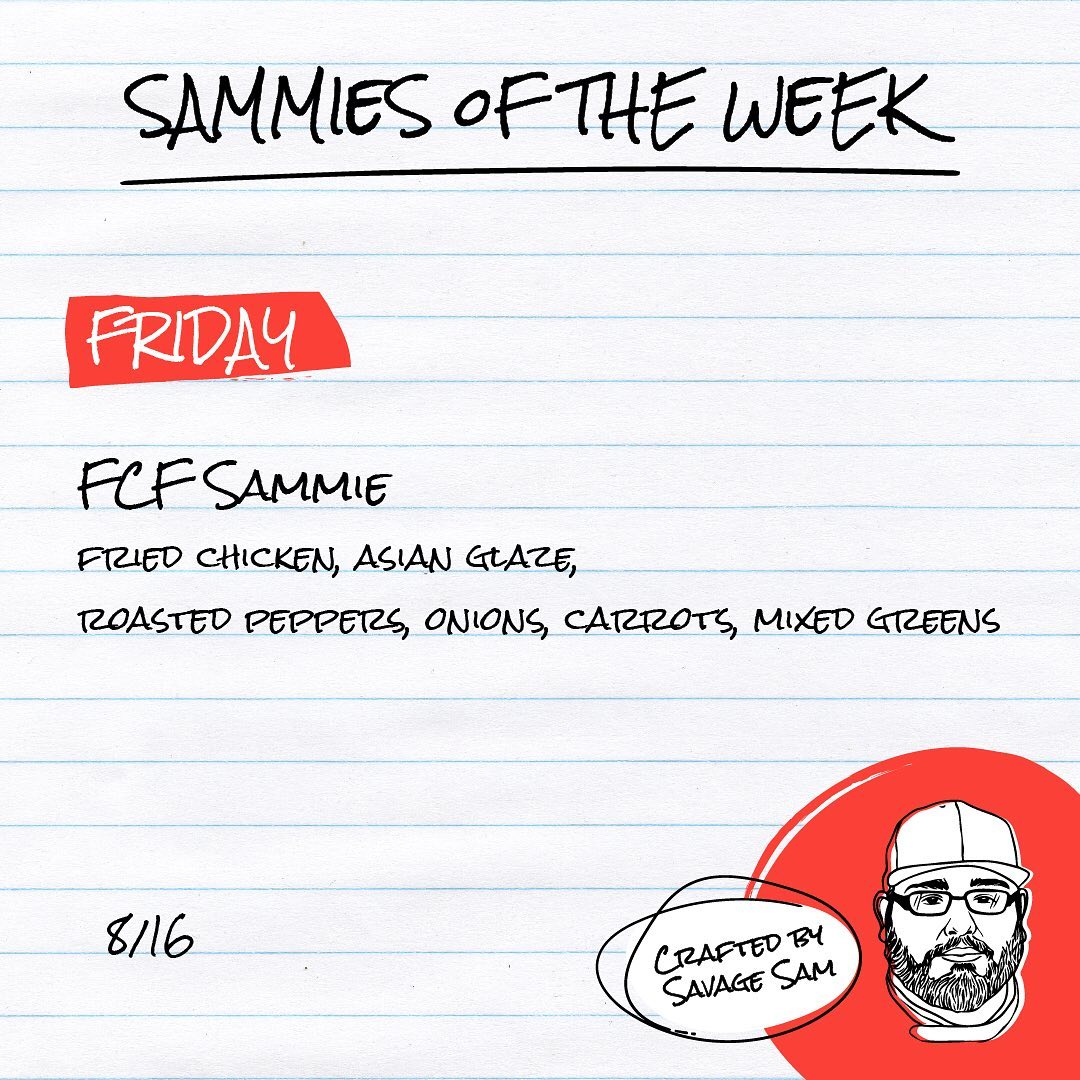 SAMMIES OF THE WEEK
FRIDAY
FCF SAMMIE
FRIED CHICKEN, ASIAN GLAZE,
ROASTED PEPPERS, ONIONS, CARROTS, MIXED GREENS
8/16
CRAFTED BY
SAVAGE SAM